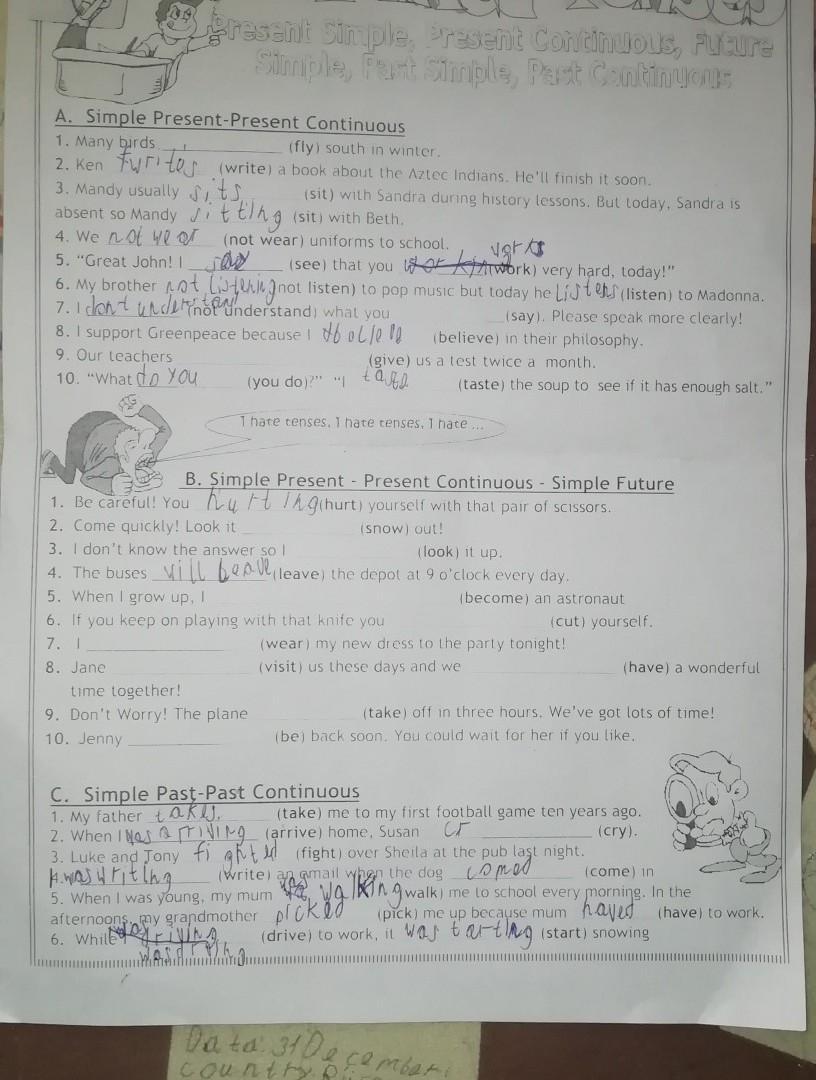 Present Simple, Present Continuous, Future
Simple, Past Simple, Past Continuous
A. Simple Present-Present Continuous
1. Many birds ____________ (fly) south in winter.
2. Ken (write) a book about the Aztec Indians. He'll finish it soon.
3. Mandy usually sits (sit) with Sandra during history lessons. But today, Sandra is
absent so Mandy sitting (sit) with Beth.
4. We not wear (not wear) uniforms to school.
5. "Great John! I (see) that you (work) very hard, today!"
6. My brother not listening (not listen) to pop music but today he Listens (listen) to Madonna.
7. I dont understand (not understand) what you (say). Please speak more clearly!
8. I support Greenpeace because I (believe) in their philosophy.
9. Our teachers (give) us a test twice a month.
10. "What do you (you do)?" "I (taste) the soup to see if it has enough salt."
I hate tenses, I hate tenses, I hate ...
B. Simple Present - Present Continuous - Simple Future
1. Be careful! You hurting (hurt) yourself with that pair of scissors.
2. Come quickly! Look it ____________ (snow) out!
3. I don't know the answer so I (look) it up.
4. The buses will (leave) the depot at 9 o'clock every day.
5. When I grow up, I (become) an astronaut
6. If you keep on playing with that knife you (cut) yourself.
7. I ____________ (wear) my new dress to the party tonight!
8. Jane (visit) us these days and we (have) a wonderful
time together!
9. Don't Worry! The plane (take) off in three hours. We've got lots of time!
10. Jenny ____________ (be) back soon. You could wait for her if you like.
C. Simple Past-Past Continuous
1. My father takes (take) me to my first football game ten years ago.
2. When I was arriving (arrive) home, Susan cr ____________ (cry).
3. Luke and Tony fighted (fight) over Sheila at the pub last night.
was writing (write) an email when the dog comed (come) in
5. When I was young, my mum walking (walk) me to school every morning. In the
afternoons, my grandmother picked (pick) me up because mum haved (have) to work.
6. While (drive) to work, it was tarting (start) snowing
Data: 31 December
country